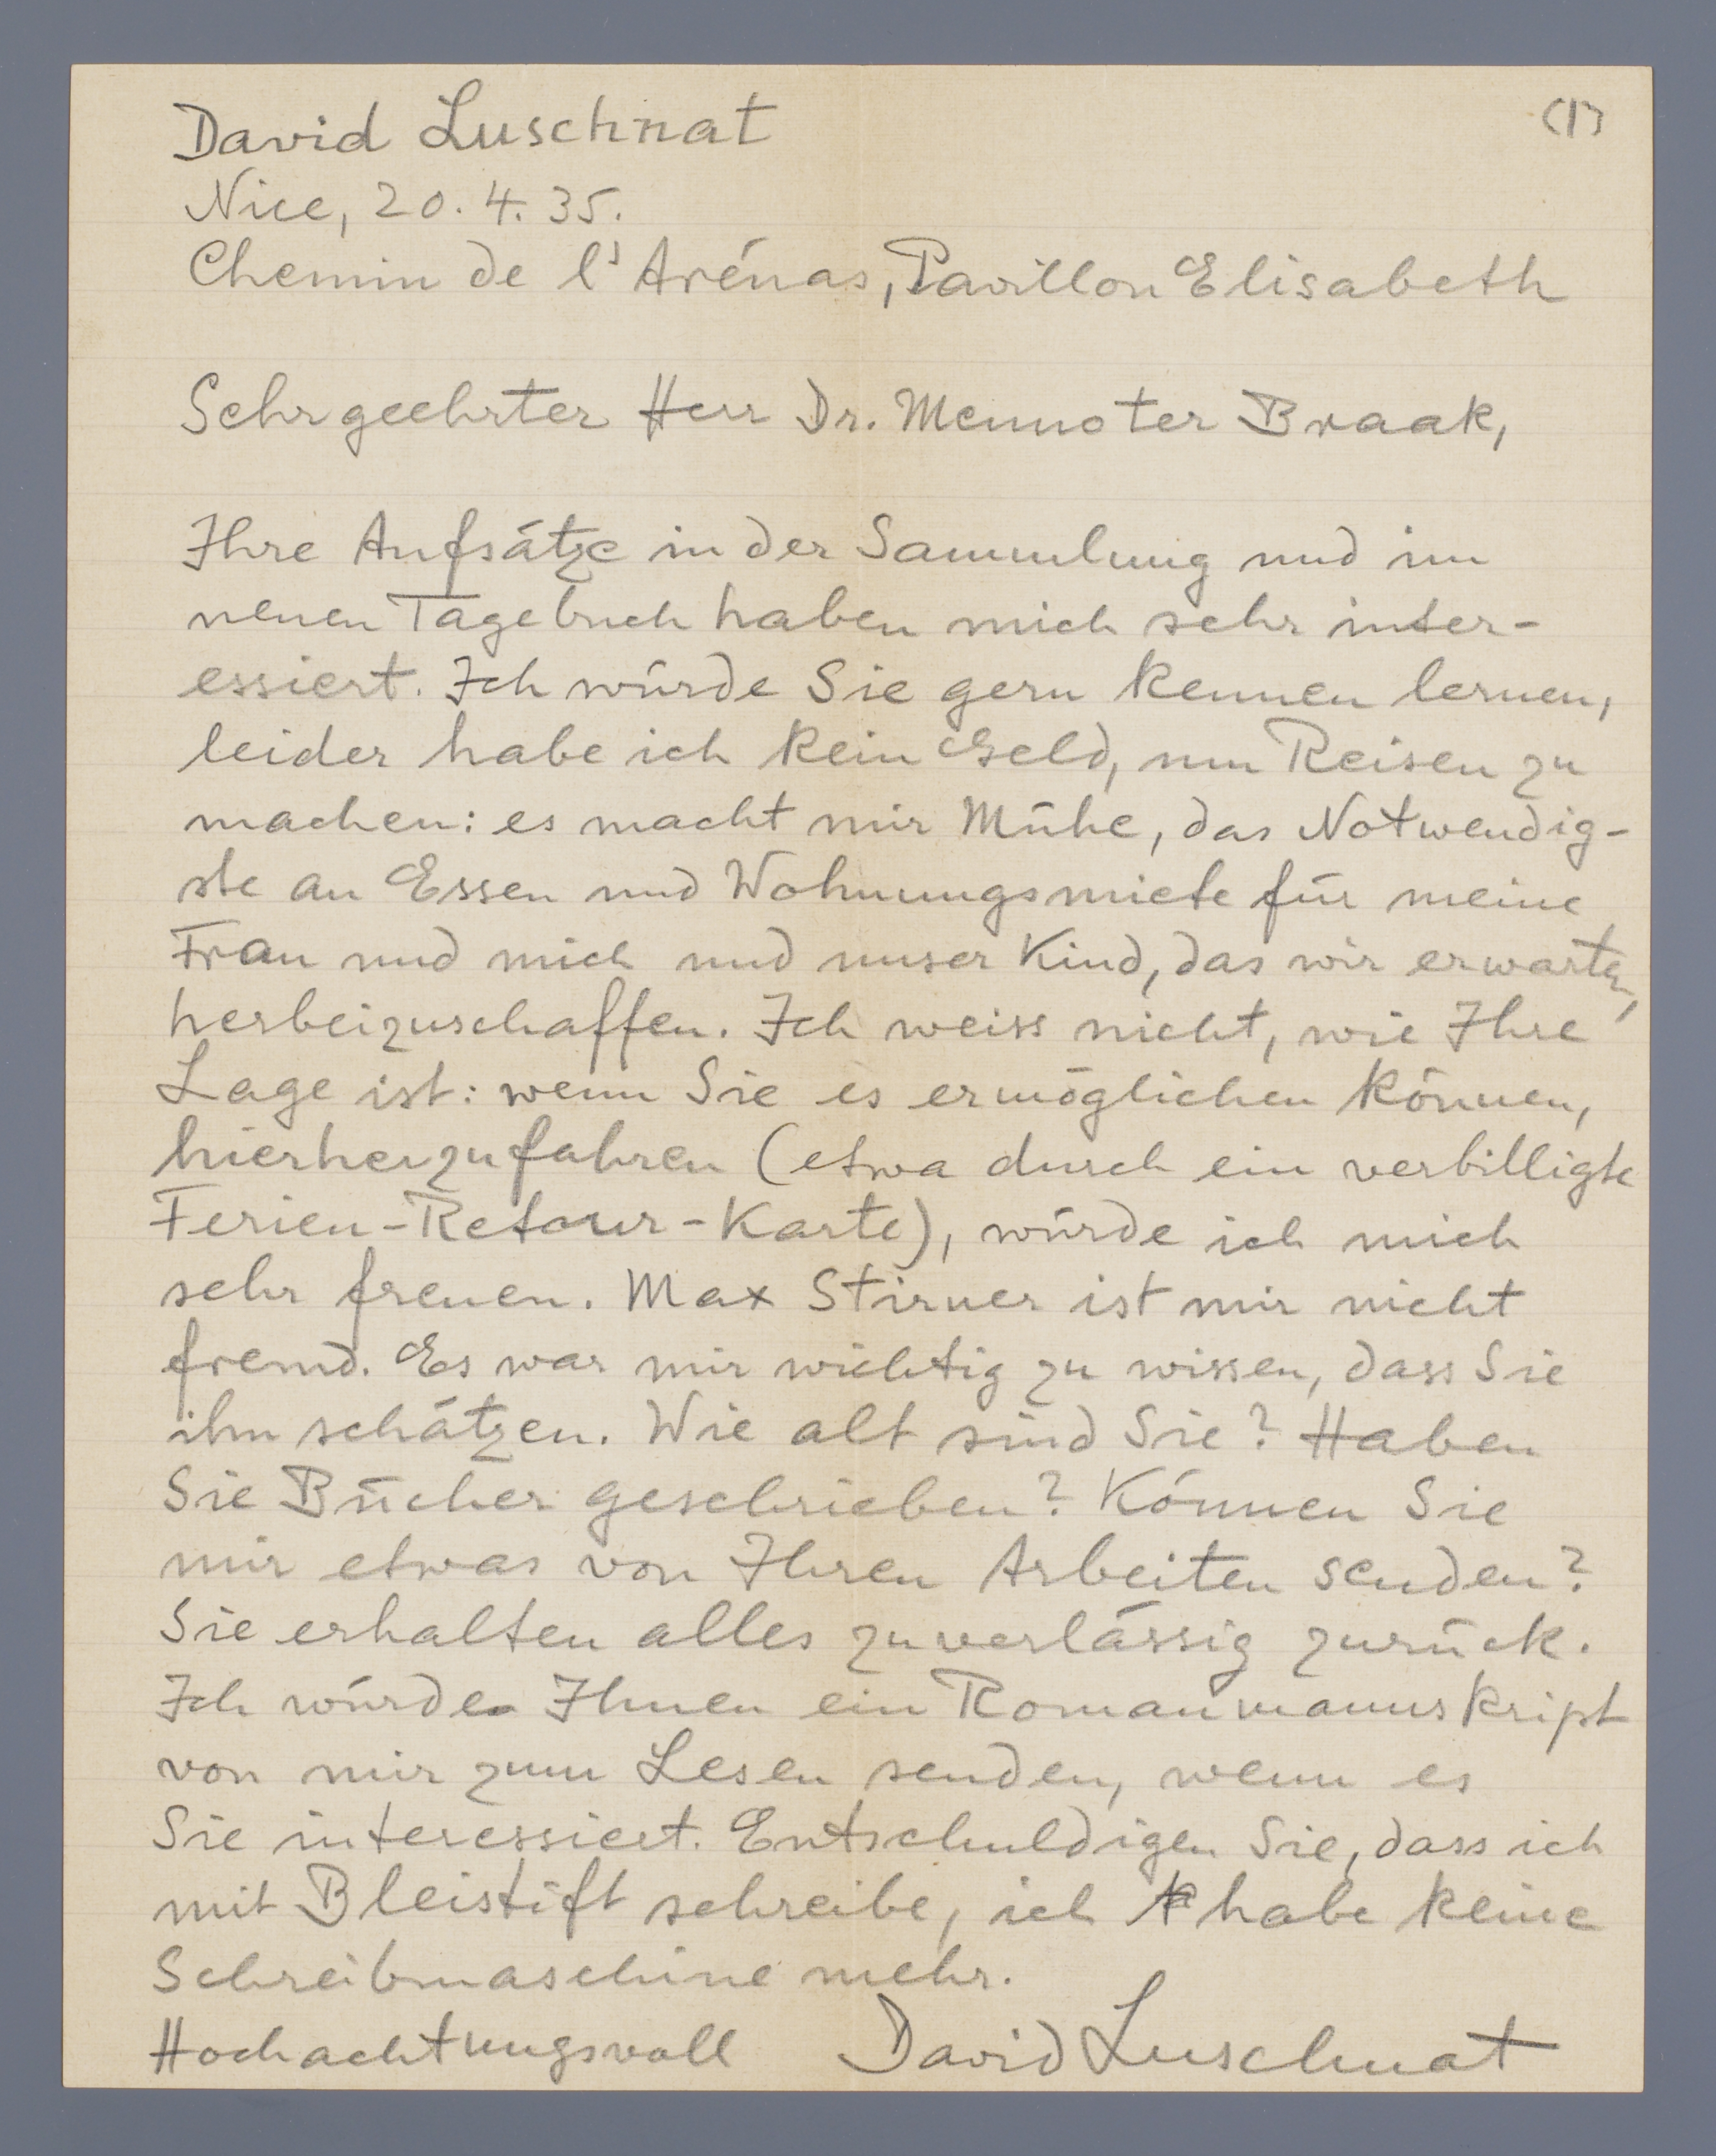 (1)
David Luschnat
Nice, 20. 4. 35.
Chemin de l'Arénas, Pavillon Elisabeth
Sehr geehrter Herr Dr. Menno ter Braak,
Ihre Aufsätze in der Sammlung und im
neuen Tagebuch haben mich sehr inter-
essiert. Ich würde Sie gern kennen lernen,
leider habe ich kein Geld, um Reisen zu
machen: es macht mir Mühe, das Notwendig-
ste an Essen und Wohnungsmiete für meine
Frau und mich und unser Kind, das wir erwarten,
herbeizuschaffen. Ich weiss nicht, wie Ihre
Lage ist: wenn Sie es ermöglichen können,
hierherzufahren (etwa durch ein verbilligte
Ferien-Retour-Karte), würde ich mich
sehr freuen. Max Stirner ist mir nicht
fremd. Es war mir wichtig zu wissen, dass Sie
ihn schätzen. Wie alt sind Sie? Haben
Sie Bücher geschrieben? Können Sie
mir etwas von Ihren Arbeiten senden?
Sie erhalten alles zuverlässig zurück.
Ich würde Ihnen ein Romanmanuskript
von mir zum Lesen senden, wenn es
Sie interessiert. Entschuldigen Sie, dass ich
mit Bleistift schreibe, ich habe keine
Schreibmaschine mehr.
Hochachtungsvoll David Luschnat